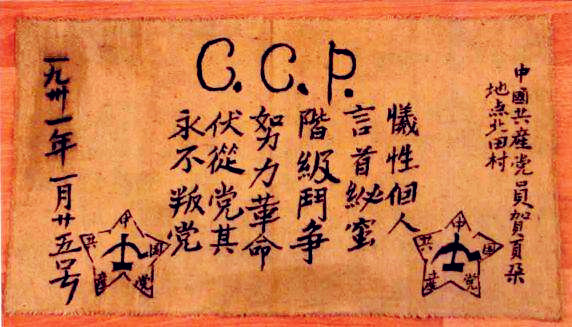 中國共產党員賀頁朵
地点北田村
C.C.P.
犧性個人
言首秘蜜
階級鬥争
努力革命
伏從党其
永不叛党
一九卅一年一月廿五号
中國共產党
中國共產党